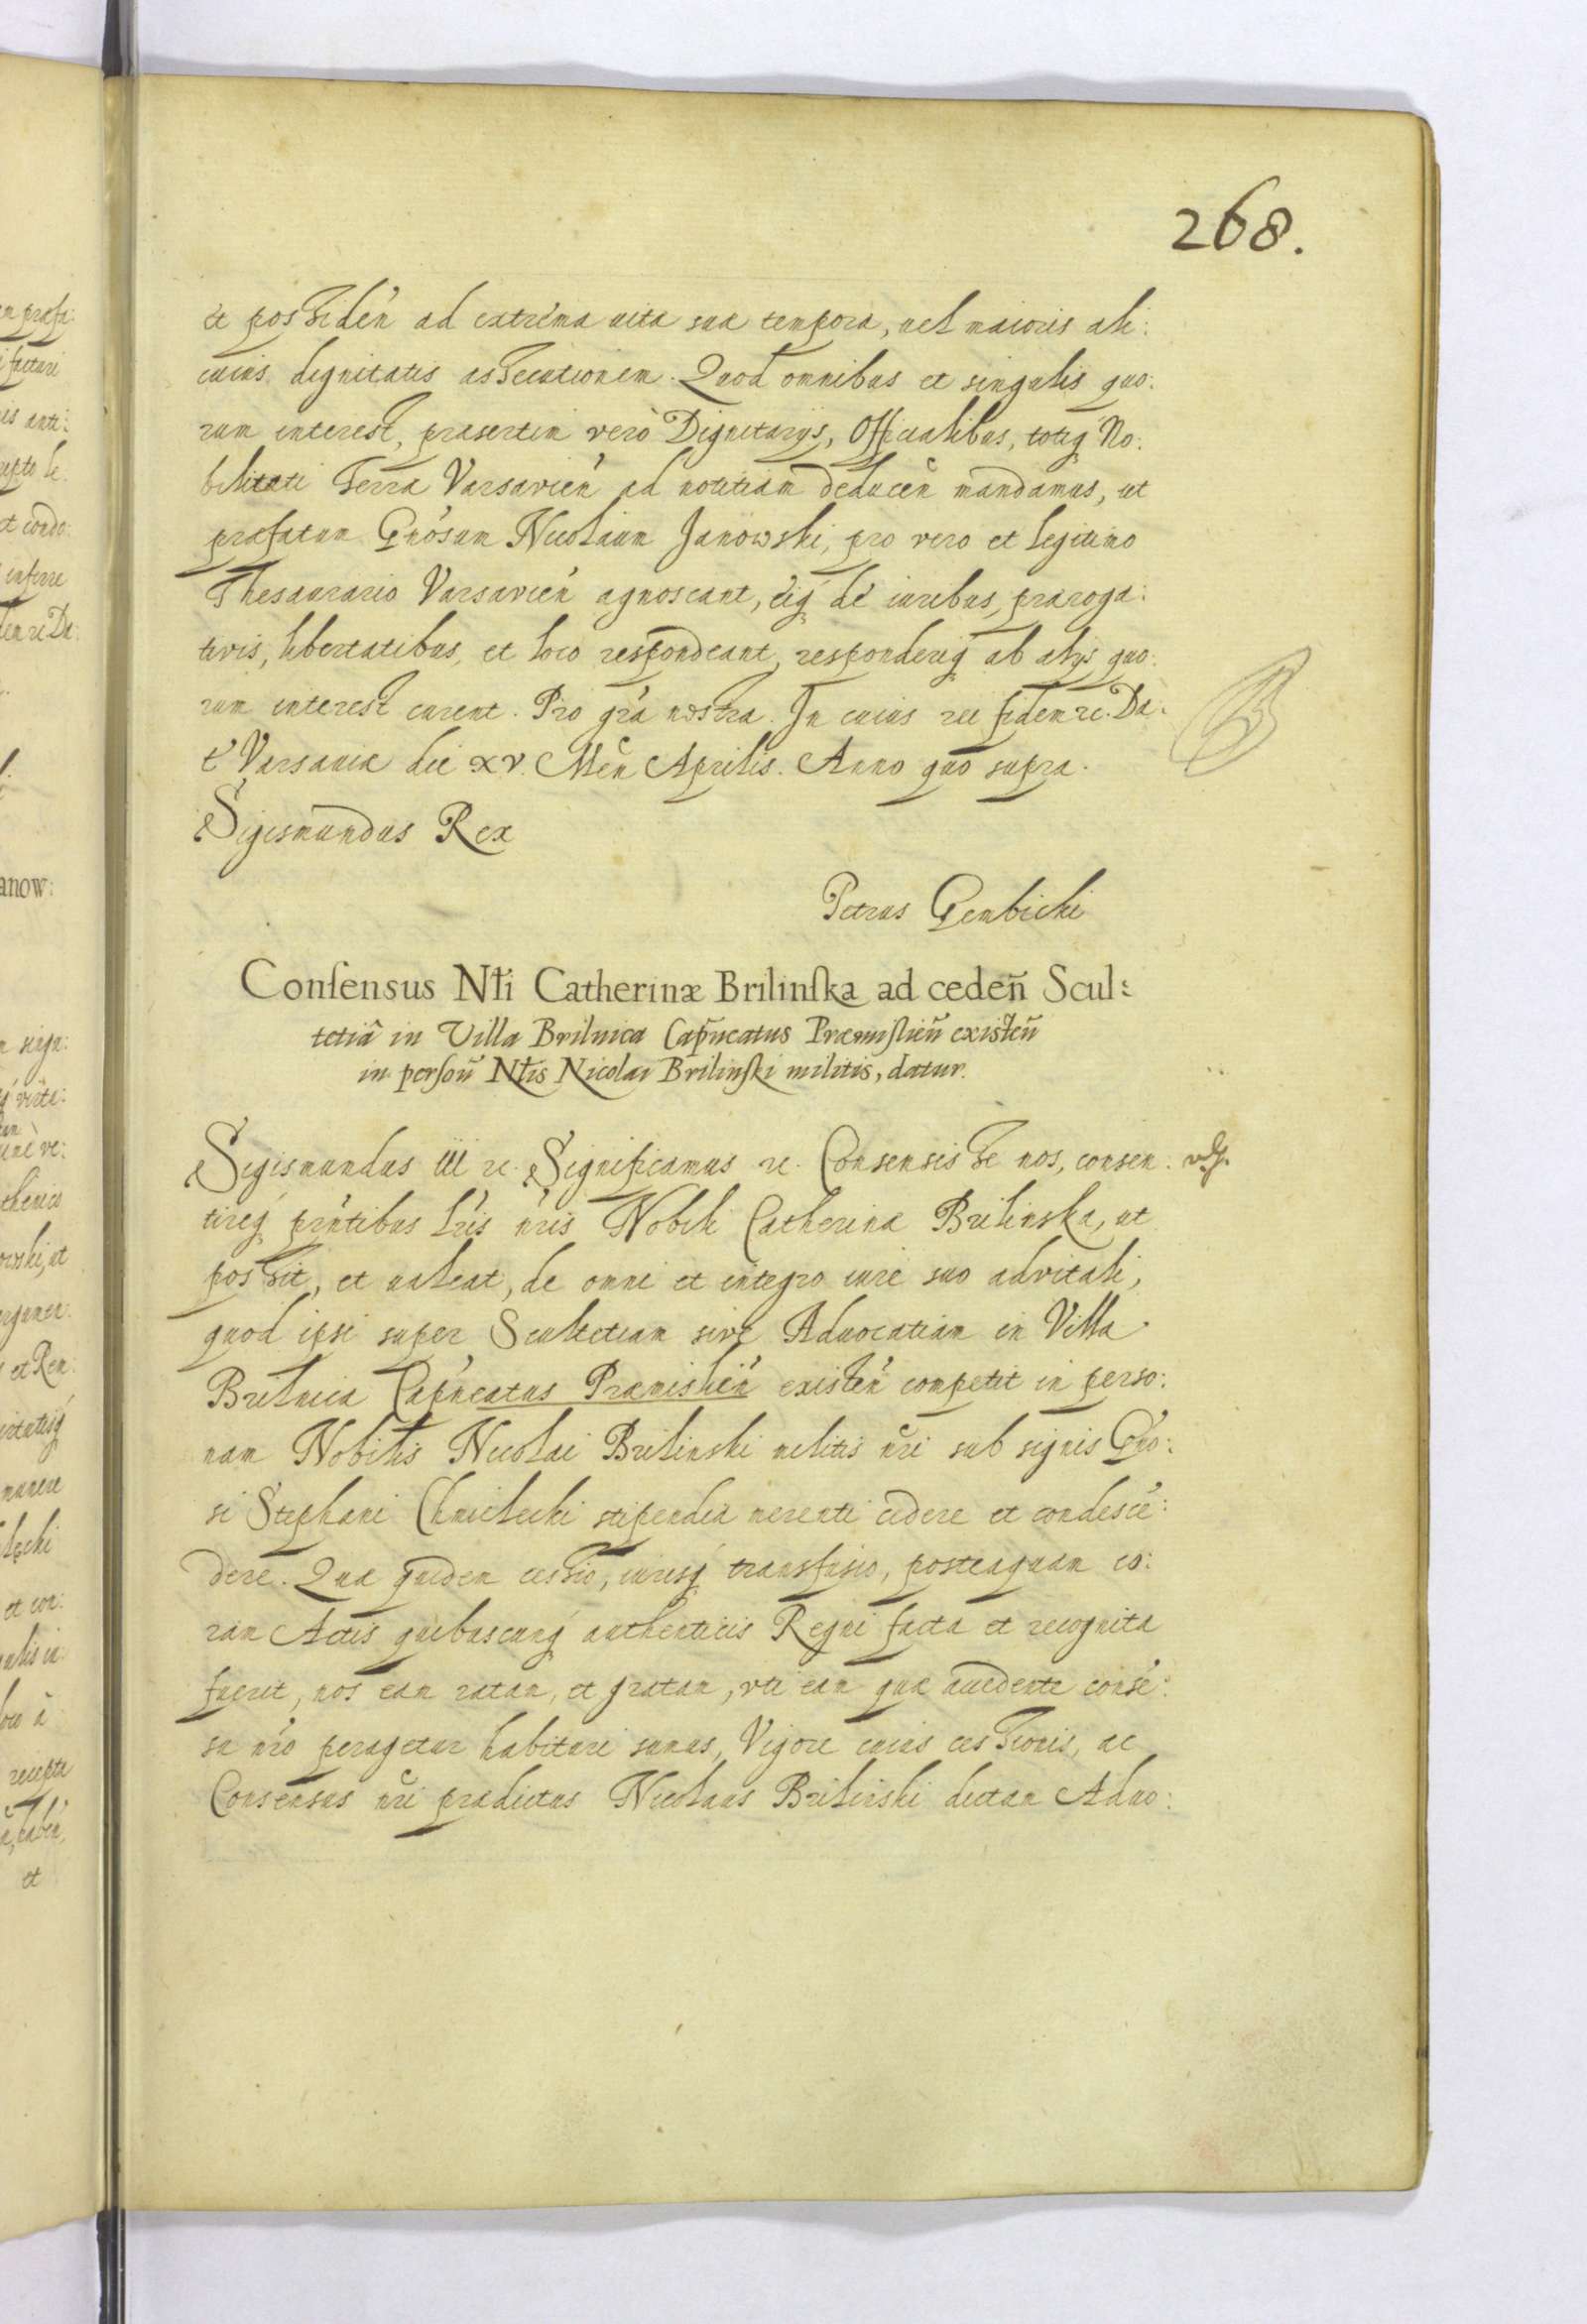 268.
et possiden̄ ad extrema vitæ suæ tempora, vel maioris ali:
cuius dignitatis assecutionem. Quod omnibus et singulis quo:
rum interest, præsertim verò Dignitarijs, Officialibus, totiq́ No:
bilitati Terræ Varsavień ad notitiam deducen̄ mandamus, ut
præfatum Gńosum Nicolaum Janowski, pro vero et legitimo
Thesaurario Varsavień agnoscant, eiq́ de iuribus, præroga:
tivis, libertatibus, et loco respondeant, responderiq́ ab alijs quo:
rum interest curent. Pro gr̄a nostra. In cuius rei fidem &c. Da:
t' Varsaviæ die XV. Men̄ Aprilis. Anno quo supra.
Sigismundus Rex
Petrus Gembicki
Consensus Nłi Catherinæ Brilinska ad ceden̄ Scul:
tetiā in Villa Brilnica Cap̄neatus Præmislien̄ existen̄
in person̄ Nłis Nicolai Brilinski militis, datur.
Sigismundus III &c. Significamus &c. Consensisse nos, consen:
tireq́ prńtibus lr̄is nr̄is Nobili Catherinæ Brilinska, ut
possit, et valeat, de omni et integro iure suo advitali,
quod ipsi super Scultetiam sive Advocatiam in Villa
Brilnica Cap̄neatus Præmislień existeń competit in perso:
nam Nobilis Nicolai Brilinski militis nr̄i sub signis Gńo:
si Stephani Chmielecki stipendia merenti cedere et condescē:
dere. Quæ quidem cessio, iurisq́ transfusio, posteaquam co:
ram Actis quibuscunq́ authenticis Regni facta et recognita
fuerit, nos eam ratam, et gratam, vti eam quæ accedente consē:
su nr̄o peragetur habituri sumus, Vigore cuius cessionis, ac
Consensus nr̄i prædictus Nicolaus Brilinski dictam Advo: